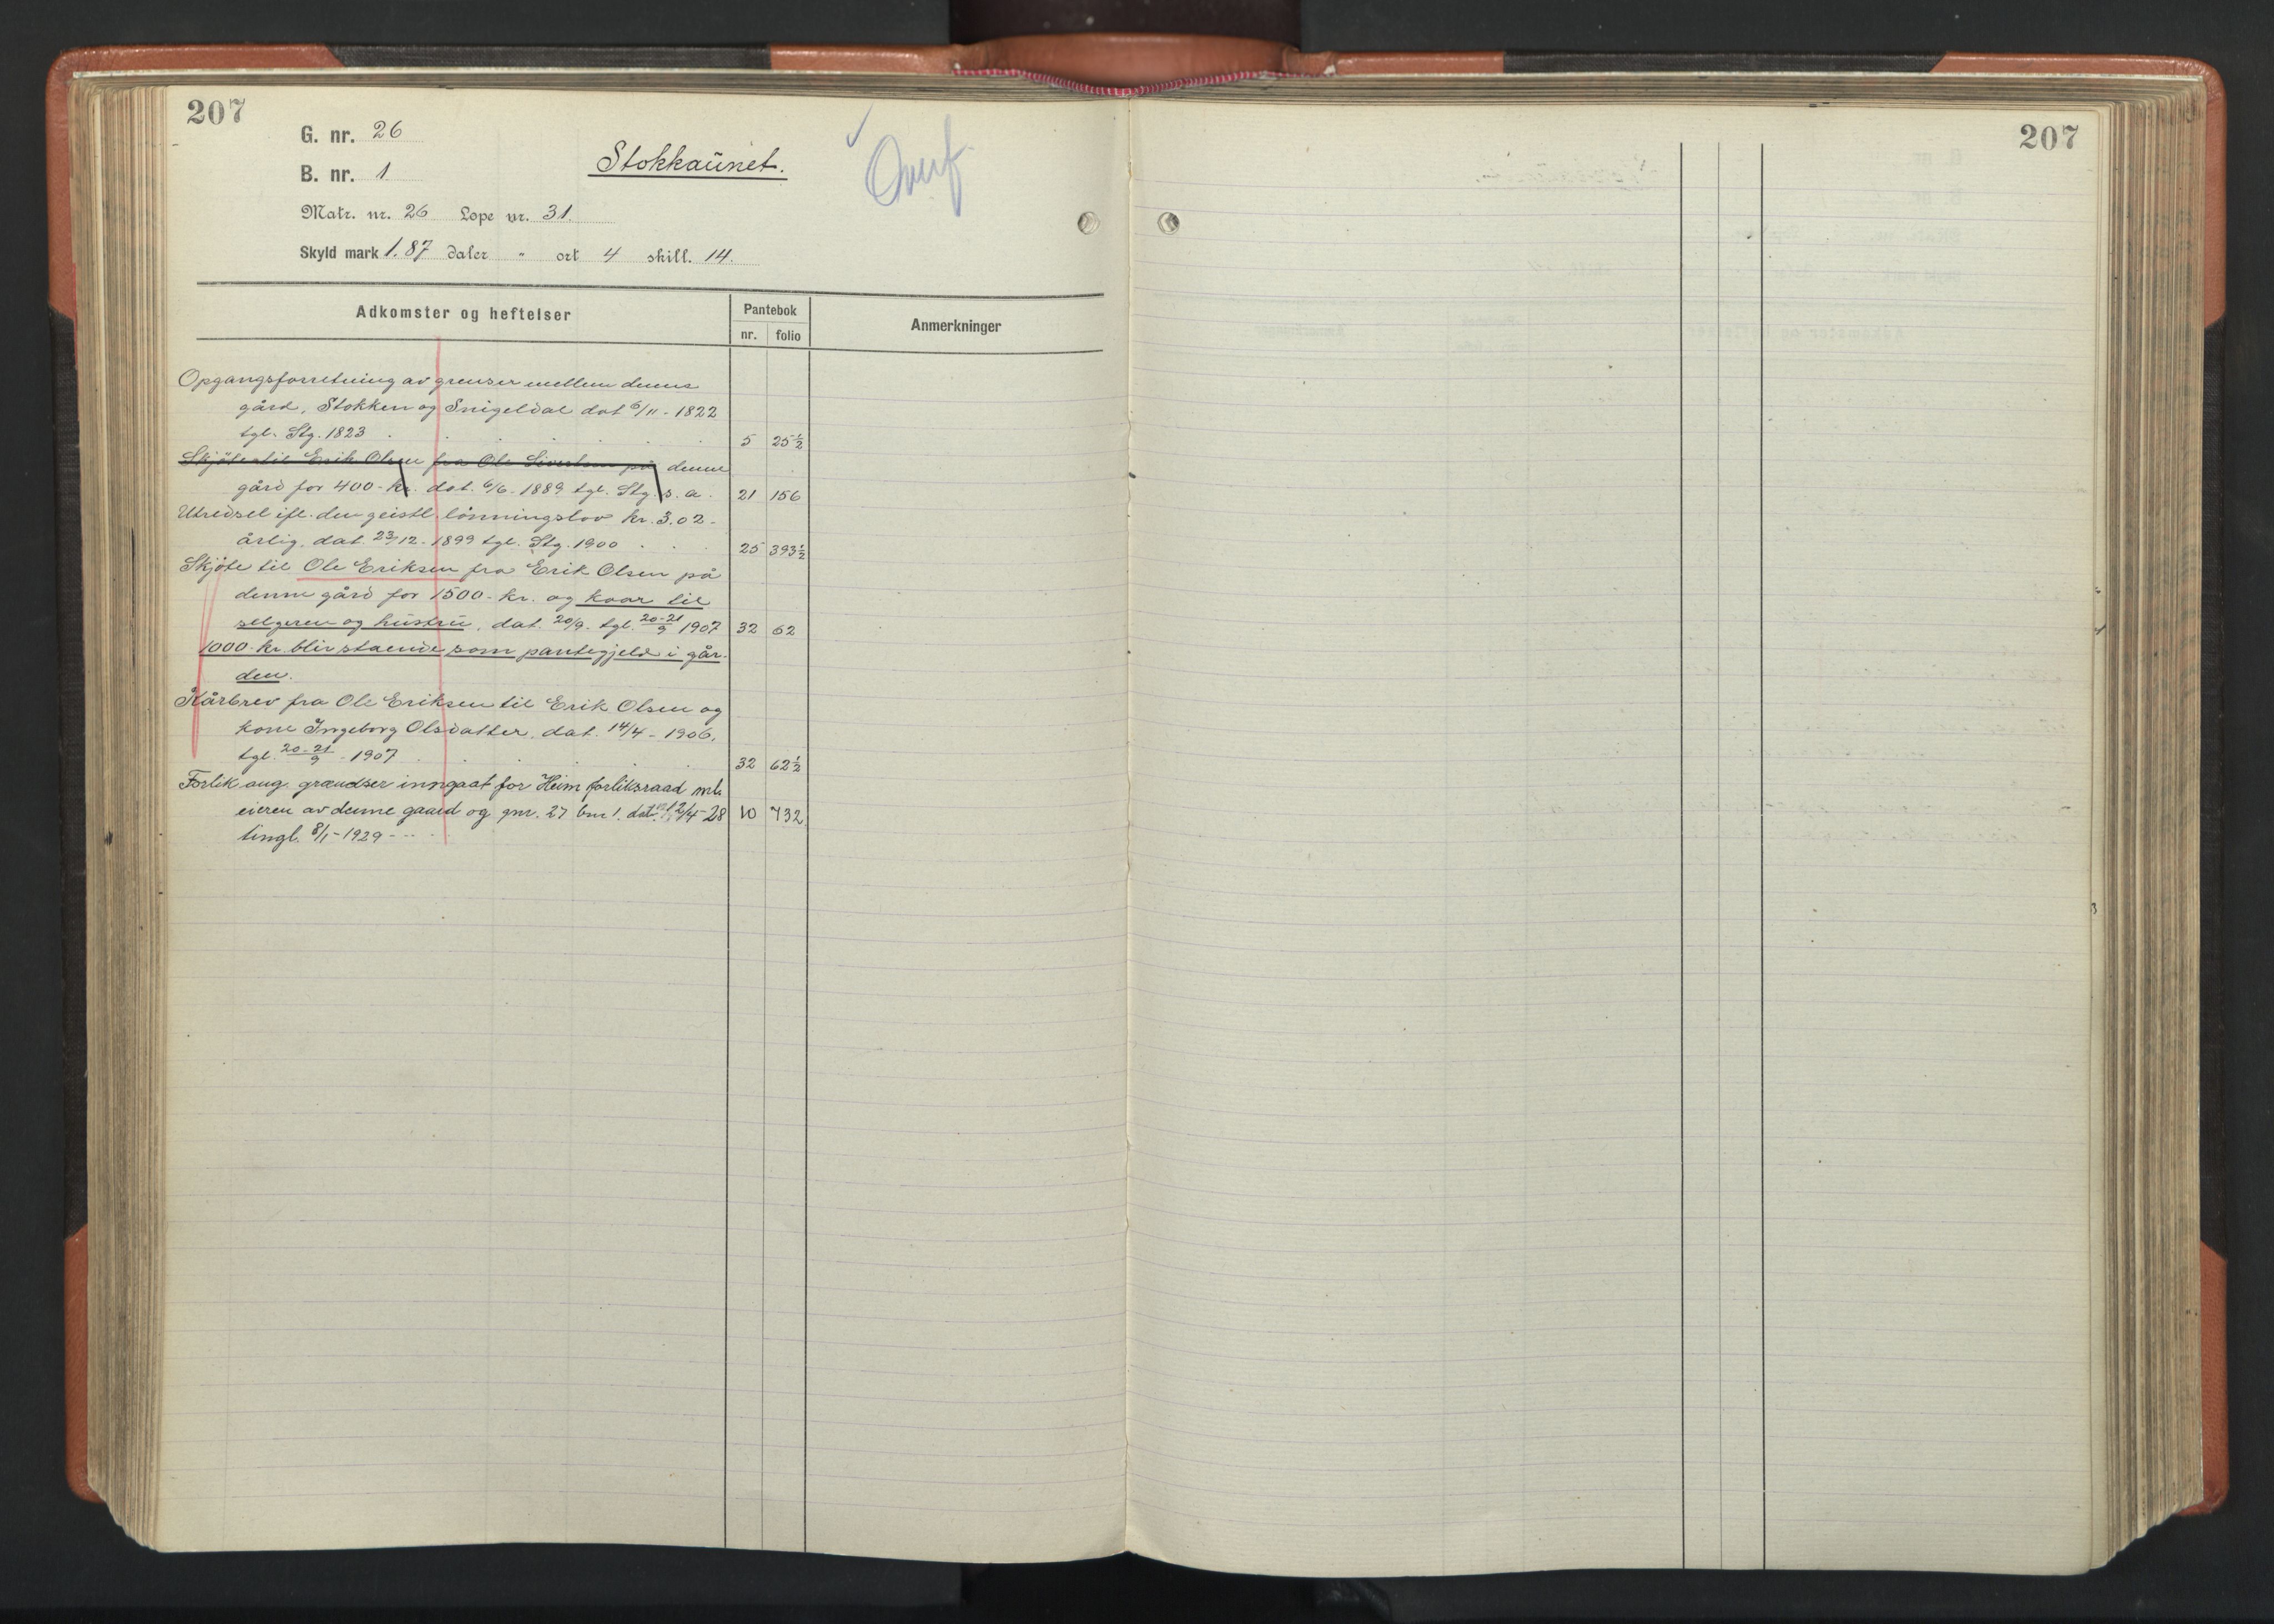 207
G. nr. 26
B. nr. 1
Stokkaunet.
Overf.
Matr. nr. 26 Lope nr. 31.
Skyld mark 1.87 daler " ort 4 skill. 14.
Adkomster og heftelser
Pantebok
nr. folio
Anmerkninger
Opgangsforretning av grenser mellem denne
gård, Stokken og Snigeldal dat 6/11 - 1822
tgl. Stg. 1823 . . . . . . 5 25 1/2
Skjöte til Erik Olsen fra Ole Sivertsen på denne
gård for 400 - kr. dat. 6/6. 1889 tgl. Stg. s. a. 21 156
Utredsel ifl. den geistl. lönningslov kr. 3.02 -
årlig, dat. 23/12 - 1899 tgl. Stg. 1900 . . . 25 393 1/2
Skjöte til Ole Eriksen fra Erik Olsen på
denne gård for 1500 - kr. og kaar til
selgeren og hustru, dat. 20/9 - tgl. 20-21/9 1907 32 62
1000 - kr. blir staende som pantegjeld i går-
den.
Kårbrev fra Ole Eriksen til Erik Olsen og
kone Ingeborg Olsdatter, dat. 14/4 - 1906,
tgl. 20-21/9 - 1907 . . . . . 32 62 1/2
Forlik ang. grændser inngaat for Heim forliksraad ml.
eieren av denne gaard og gnr. 27 bnr 1. dat. 12/4-28 10 732
tingl. 8/1 - 1929 - - -
207